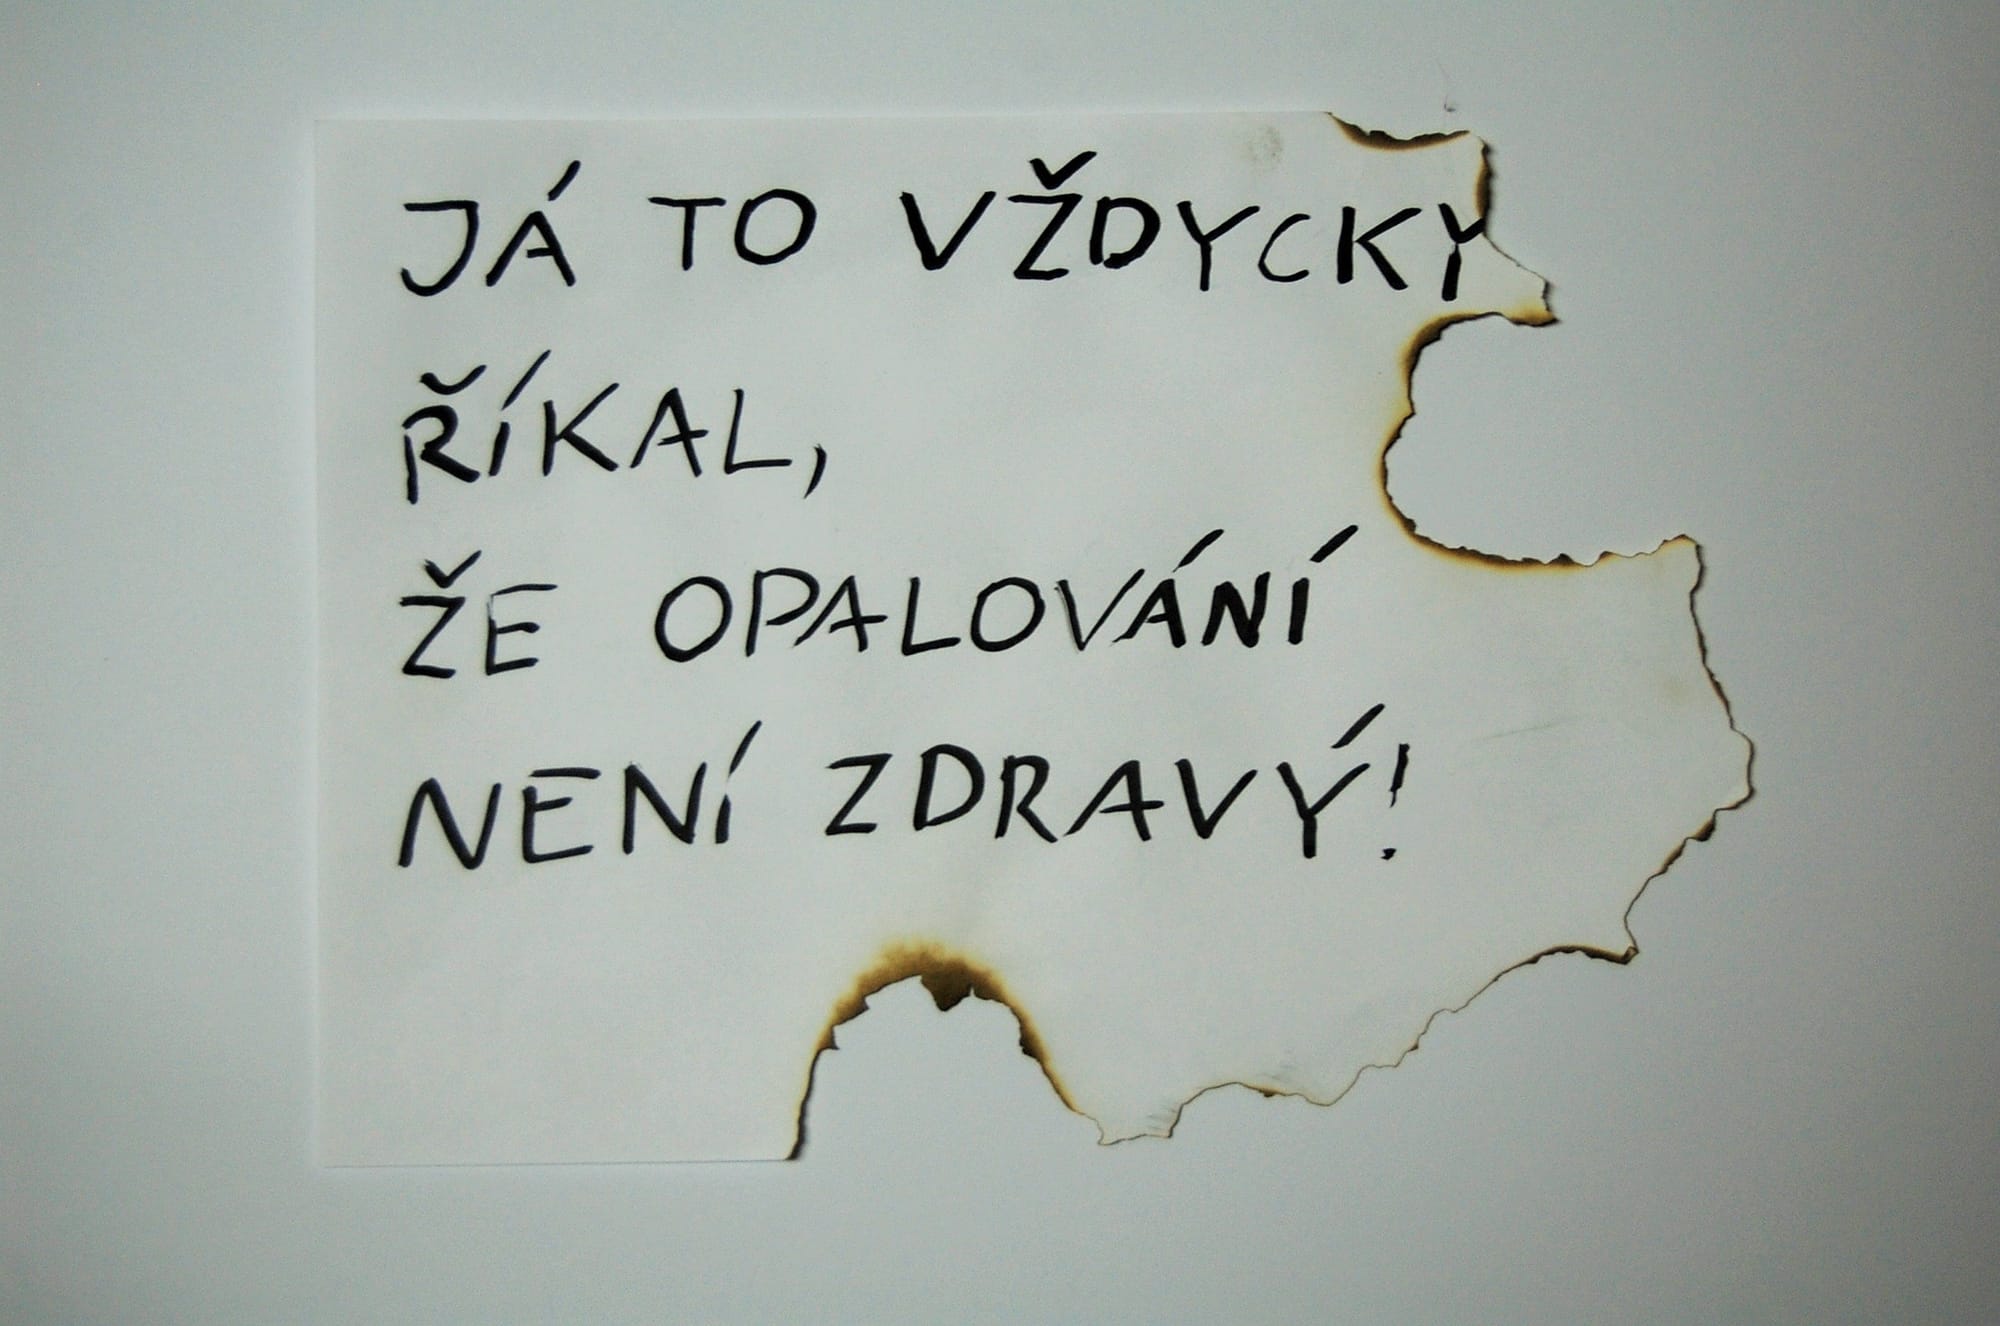 JÁ TO VŽDYCKY
ŘÍKAL,
ŽE OPALOVÁNÍ
NENÍ ZDRAVÝ!